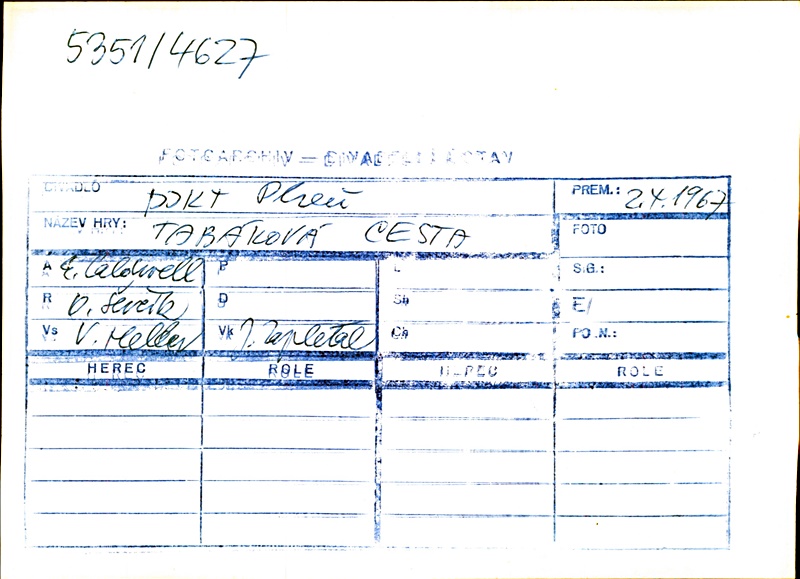 5351/4627
FOTOARCHIV — DIVADELNÍ ÚSTAV
DIVADLO DJKT Plzeň PREM.: 2.X.1967
NÁZEV HRY: TABÁKOVÁ CESTA FOTO
A E. Caldwell P L S.G.:
R O. Ševčík D Sb E/
Vs V. Heller Vk J. Zapletal Ch PO.N.:
HEREC ROLE HEREC ROLE